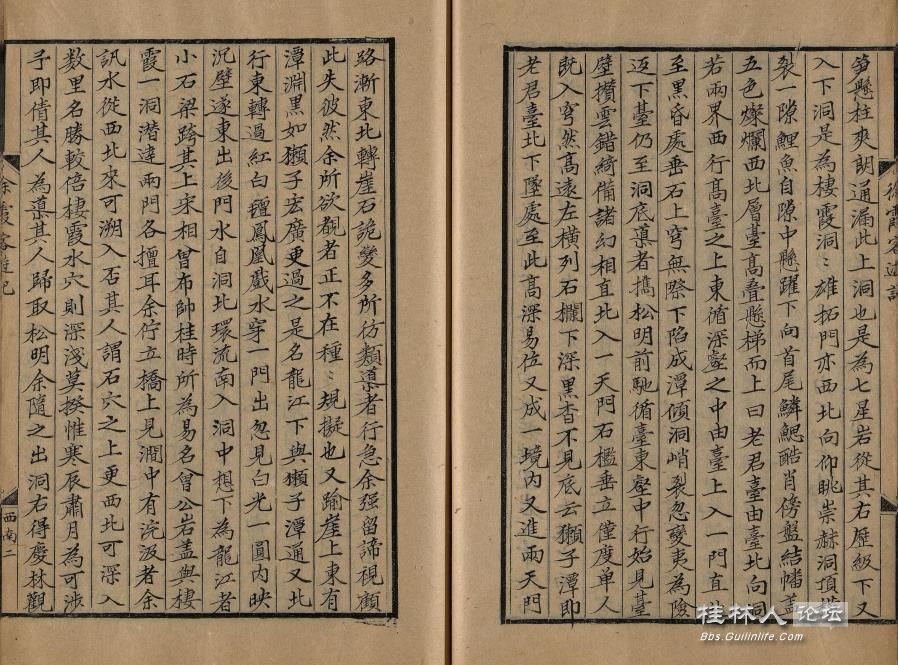 笋懸柱爽朗通漏此上洞也是為七星岩從其右歷級下又
入下洞是為棲霞洞〻雄拓門亦西北向仰眺崇赫洞頂橫
裂一隙鯉魚自隙中懸躍下向首尾鱗鰓酷肖傍盤結幡蓋
五色燦爛西北層臺高疊懸梯而上曰老君臺由臺北向洞
若兩界西行高臺之上東循深壑之中由臺上入一門直
至黑昏處垂石上穹無際下陷成潭傾洞峭裂忽變夷為險
迈下臺仍至洞底導者攜松明前馳循臺東壑中行始見臺
壁攢雲錯綺備諸幻相直北入一天門石檻垂立僅度单人
既入穹然高遠左橫列石欄下深黑杳不見底云獺子潭即
老君臺北下墜處至此高深易位又成一境內又進兩天門
路漸東北轉崖石詭變多所仿類導者行急余强留諦視顧
此失彼然余所欲覩者正不在種〻規擬也又踰崖上東有
潭淵黑如獺子宏廣更過之是名龍江下與獺子潭通又北
行東轉過紅白氊鳳凰戲水穿一門出忽見白光一圓內映
沉壁遂東出後門水自洞北環流南入洞中想下為龍江者
小石梁跨其上宋相曾布帥桂時所為易名曾公岩盖與棲
霞一洞潛違兩門各擅耳余佇立橋上見澗中有浣汲者余
訊水從西北來可溯入否其人謂石穴之上更西北可深入
数里名勝較倍棲霞水穴則深淺莫揆惟寒辰肅月為可涉
予即倩其人為導其人歸取松明余隨之出洞右得慶林觀
徐霞客遊記
徐霞客遊記
西南二
桂林人论坛
Bbs.Guilinlife.com